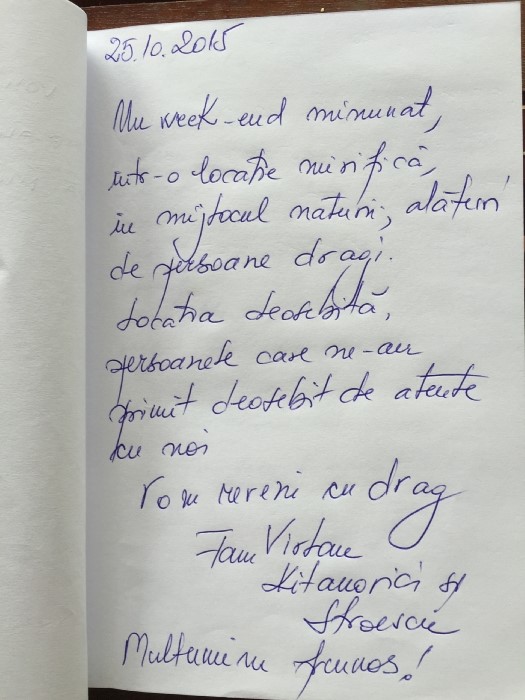 25.10.2015
Un week-end minunat,
într-o locatie mirifică,
în mijlocul naturii, alături
de persoane dragi.
Locatia deosebită,
persoanele care ne-au
primit deosebit de atente
cu noi
Vom reveni cu drag
Fam
si
Stroescu
Multumim frumos!